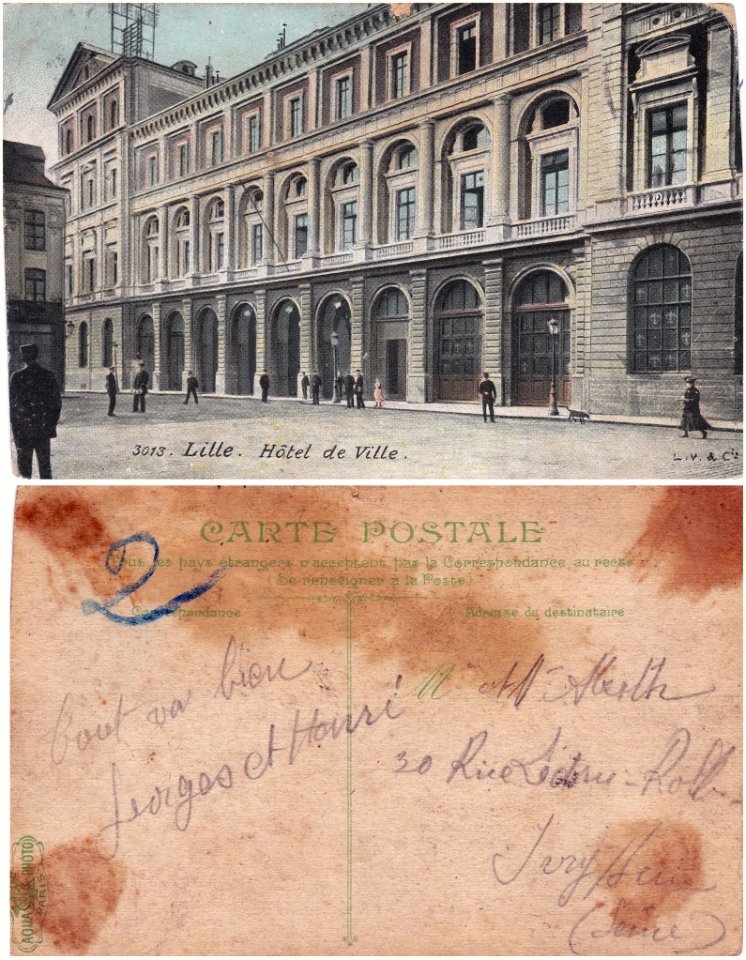 3013. Lille. Hôtel de Ville.
L.V. & Cie
CARTE POSTALE
Tous les pays étrangers n'acceptent pas la Correspondance au recto
(Se renseigner à la Poste.)
2
Correspondance
Adresse du destinataire
tout va bien
Georges et Henri
M et Mme
30 Rue Ledru-Roll
Ivry s/ Seine
(Seine)
AQUA PHOTO
PARIS